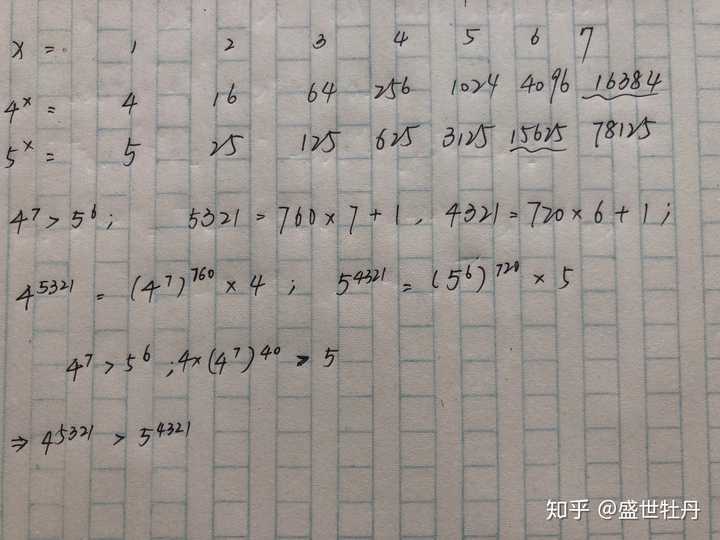 x = 1 2 3 4 5 6 7
4^x = 4 16 64 256 1024 4096 16384
5^x = 5 25 125 625 3125 15625 78125
4^7 > 5^6; 5321 = 760 × 7 + 1, 4321 = 720 × 6 + 1;
4^5321 = (4^7)^760 × 4; 5^4321 = (5^6)^720 × 5
4^7 > 5^6; 4×(4^7)^40 > 5
⇒ 4^5321 > 5^4321
知乎 @盛世牡丹